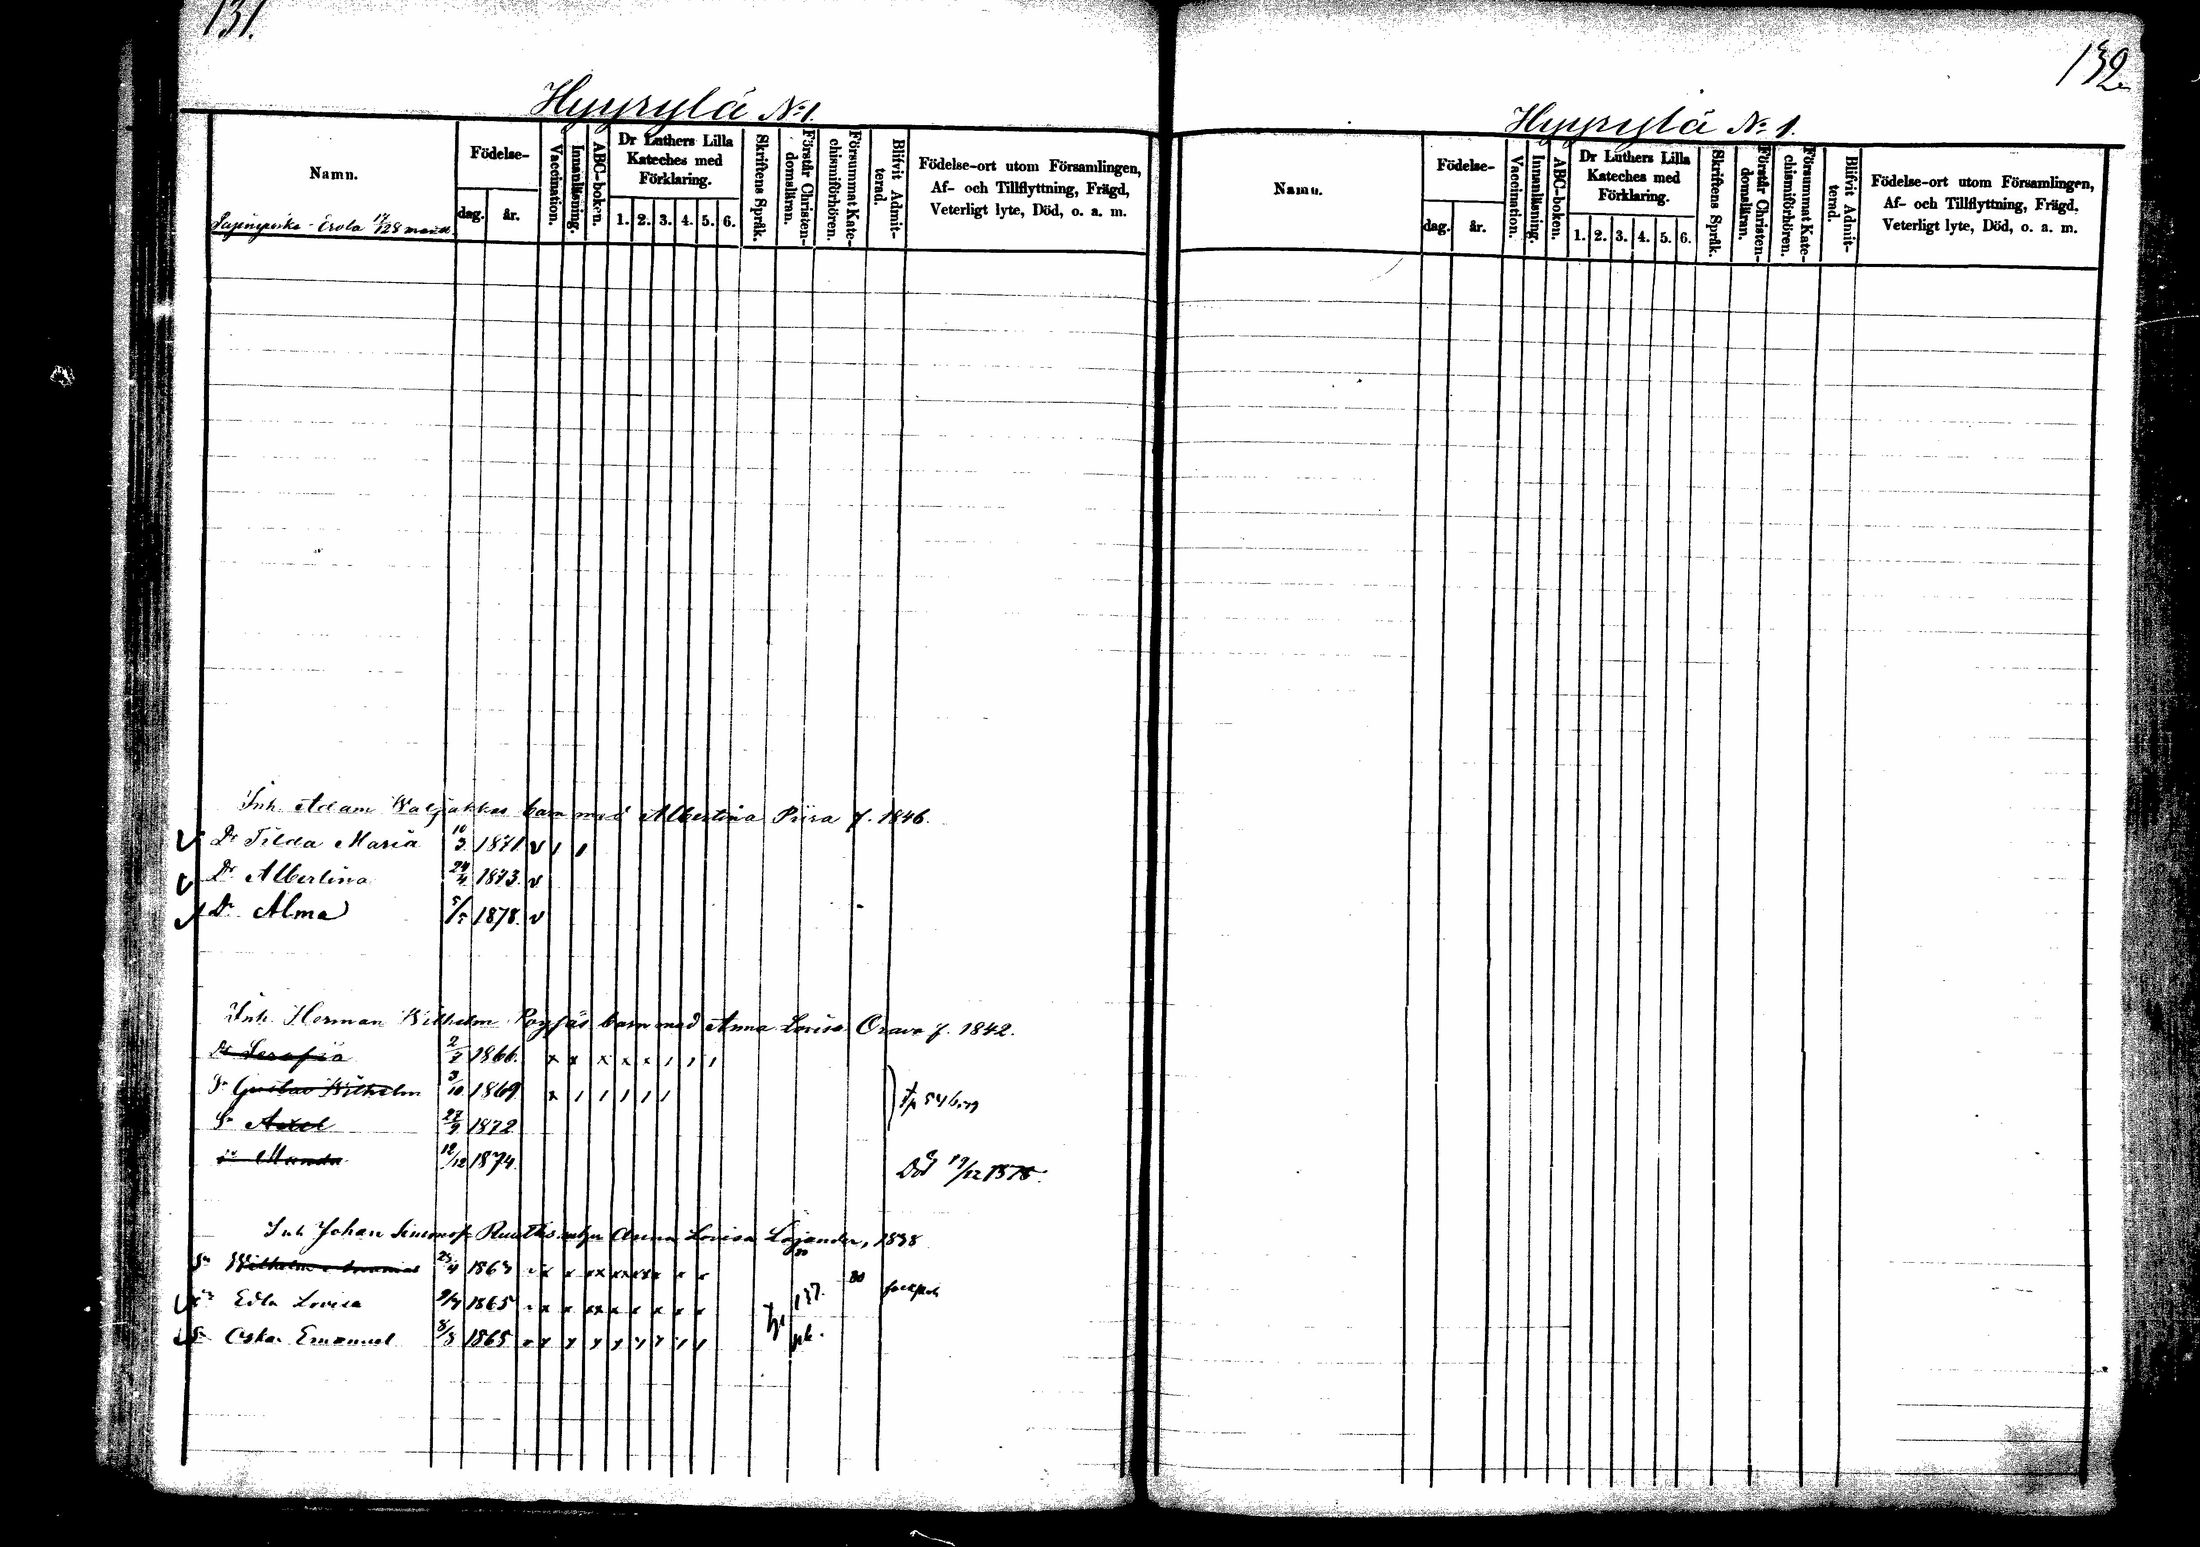 131.
Hyyrylä No 1.
Namn.
Födelse-
dag. år.
Vaccination.
Innanläsning.
ABC-boken.
Dr Luthers Lilla
Kateches med
Förklaring.
1. 2. 3. 4. 5. 6.
Skriftens Språk.
Förstår Christen-
domsläran.
Försummat Kate-
chismiförhören.
Blifvit Admit-
terad.
Födelse-ort utom Församlingen,
Af- och Tillflyttning, Frägd,
Veterligt lyte, Död, o. a. m.
Erola
Inh. Adam barn med Albertina Piira f. 1846.
Dr Tilda Maria 10/3 1871 v
Dr Albertina 24/4 1873. v
Dr Alma 5/5 1878. v
Inh. Herman Wilhelm barn med Anna Lovisa Orava f. 1842.
Dr Serafia 2/7 1866. x x x x x
Sn Gustav Wilhelm 3/10 1869 x
Sn Axel 27/9 1872
Dr Manda 12/12 1874. Död 19/12 1878.
Inh Johan Anna Lovisa Lojander, 1838
Sn Wilhelm 23/4 1863
Dr Edla Lovisa 9/7 1865
Sn Oskar Emanuel 8/8 1865
132
Hyyrylä No 1.
Namn.
Födelse-
dag. år.
Vaccination.
Innanläsning.
ABC-boken.
Dr Luthers Lilla
Kateches med
Förklaring.
1. 2. 3. 4. 5. 6.
Skriftens Språk.
Förstår Christen-
domsläran.
Försummat Kate-
chismiförhören.
Blifvit Admit-
terad.
Födelse-ort utom Församlingen,
Af- och Tillflyttning, Frägd,
Veterligt lyte, Död, o. a. m.